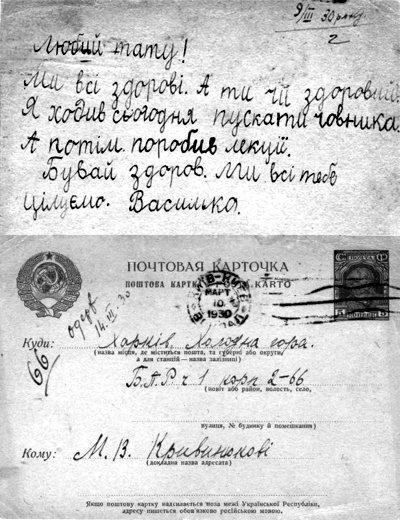 9/III 30 року.
2
Любий тату!
Ми всі здорові. А ти чй здоровий.
Я ходив сьогодня пускати човника.
А потім поробив лекції.
Бувай здоров. Ми всі тебе
цілуємо. Василько.
ПОЧТОВАЯ КАРТОЧКА
ПОШТОВА КАРТКА
KARTO
МАРТ
10
1930
5
5
14.III.30
66
Куди: Харків, Холодна гора.
(назва міста, де міститься пошта, та губерні або округи,
а для станцій — назва залізниці)
Б.А.Р. ч 1 корп 2-66
(повіт або район, волость, село,
вулиця, № будинку й помешкання)
Кому: М. В. Кривинюкові
(докладна назва адресата)
Якщо поштову картку надсилається поза межі Української Республіки,
адресу пишеться обов'язково російською мовою.